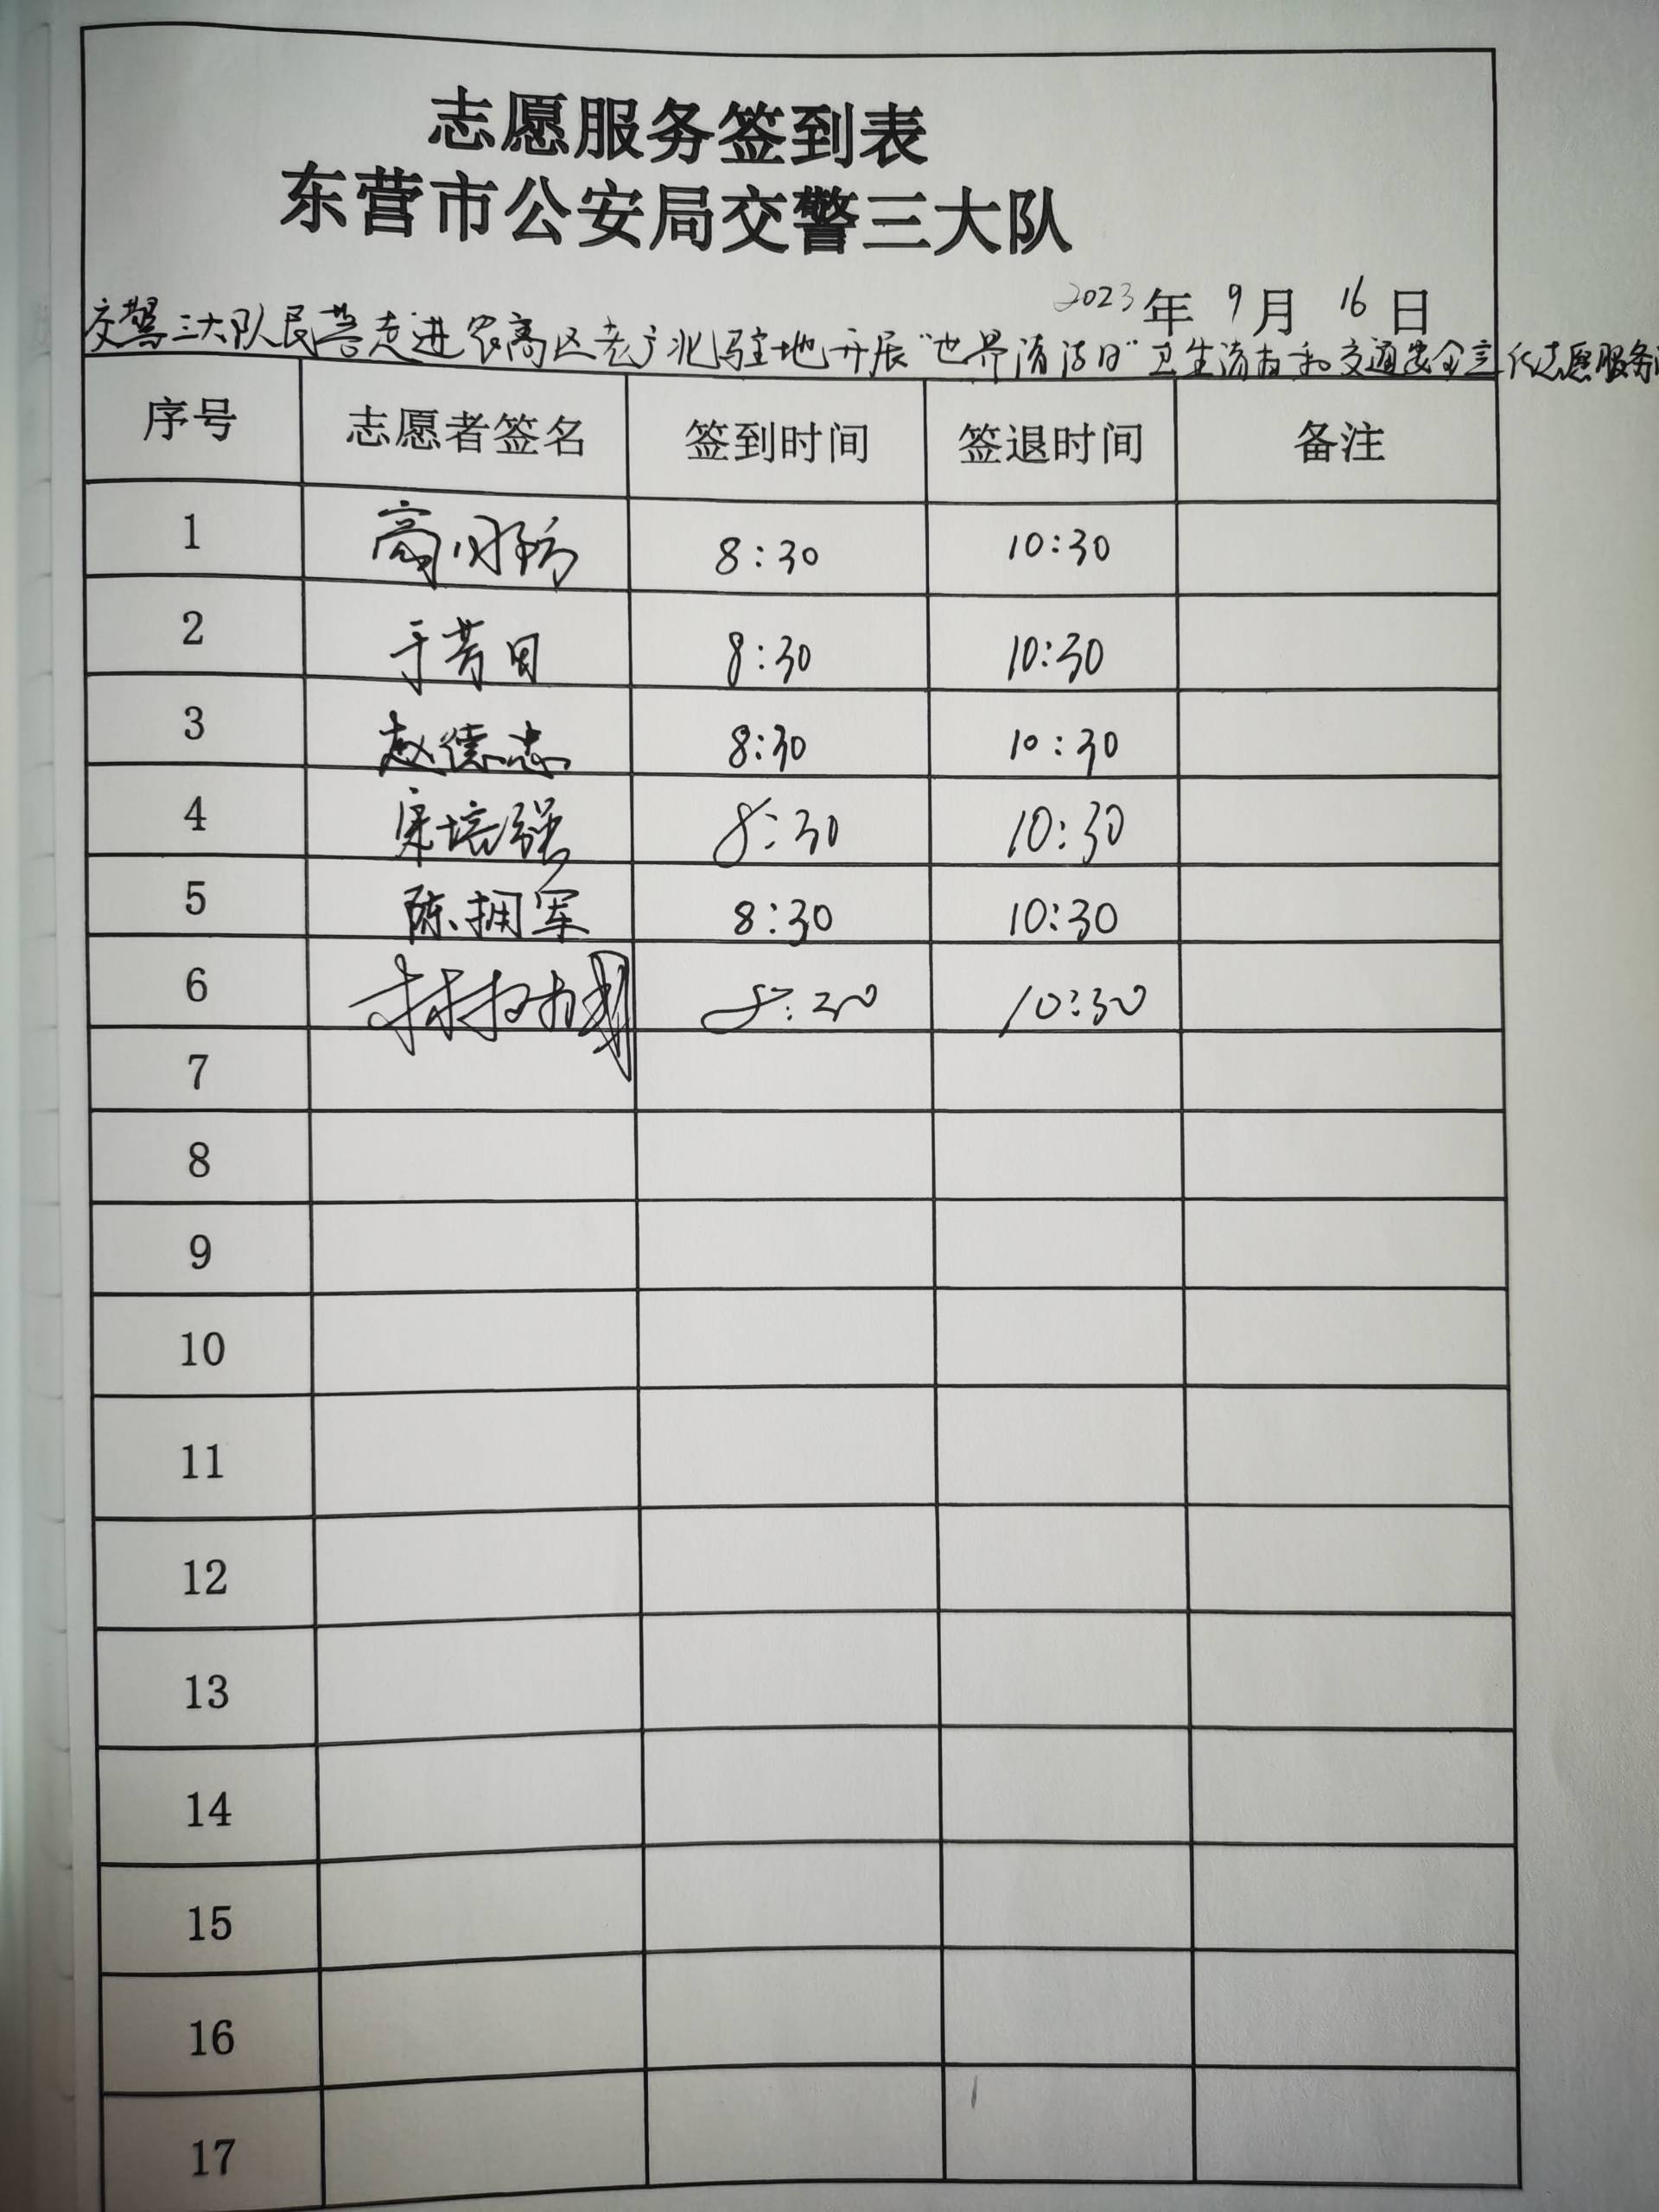 志愿服务签到表
东营市公安局交警三大队
2023年 9月 16日
交警三大队民警走进农高区老广北驻地开展"世界清洁日"卫生清扫和交通安全宣传志愿服务
序号 志愿者签名 签到时间 签退时间 备注
1 高 8:30 10:30
2 于芳 8:30 10:30
3 赵德志 8:30 10:30
4 宋培强 8:30 10:30
5 陈拥军 8:30 10:30
6 8:30 10:30
7
8
9
10
11
12
13
14
15
16
17